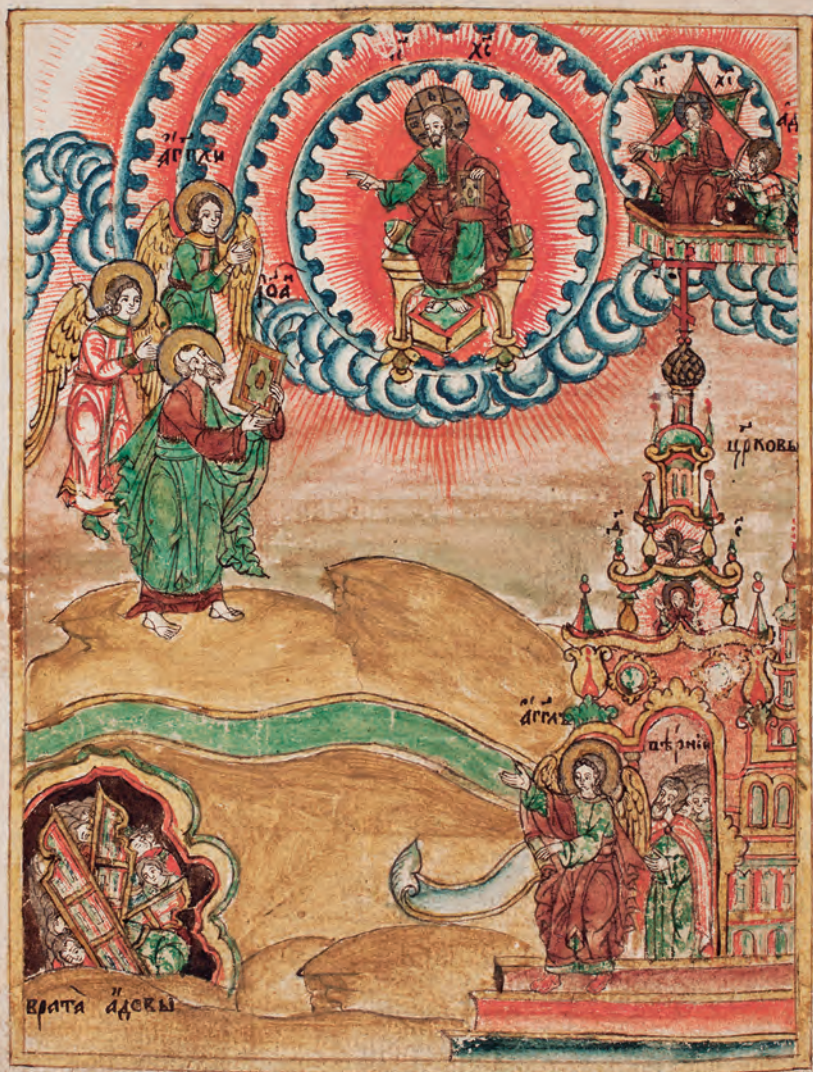 І҃С Х҃С
І҃С Х҃С
АГГЛИ
ІОА
АД
ЦРКОВЬ
АГГЛЪ
ВѢРНІИ
ВРАТА АДОВЫ